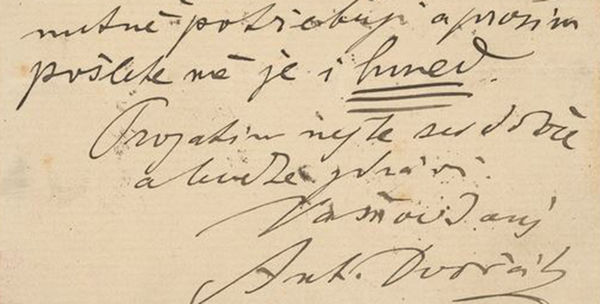 nutně potřebuji a prosím
pošlete mě je i hned.
Prozatím mějte se dobře
a buďte zdrávi.
Váš oddaný
Ant. Dvořák